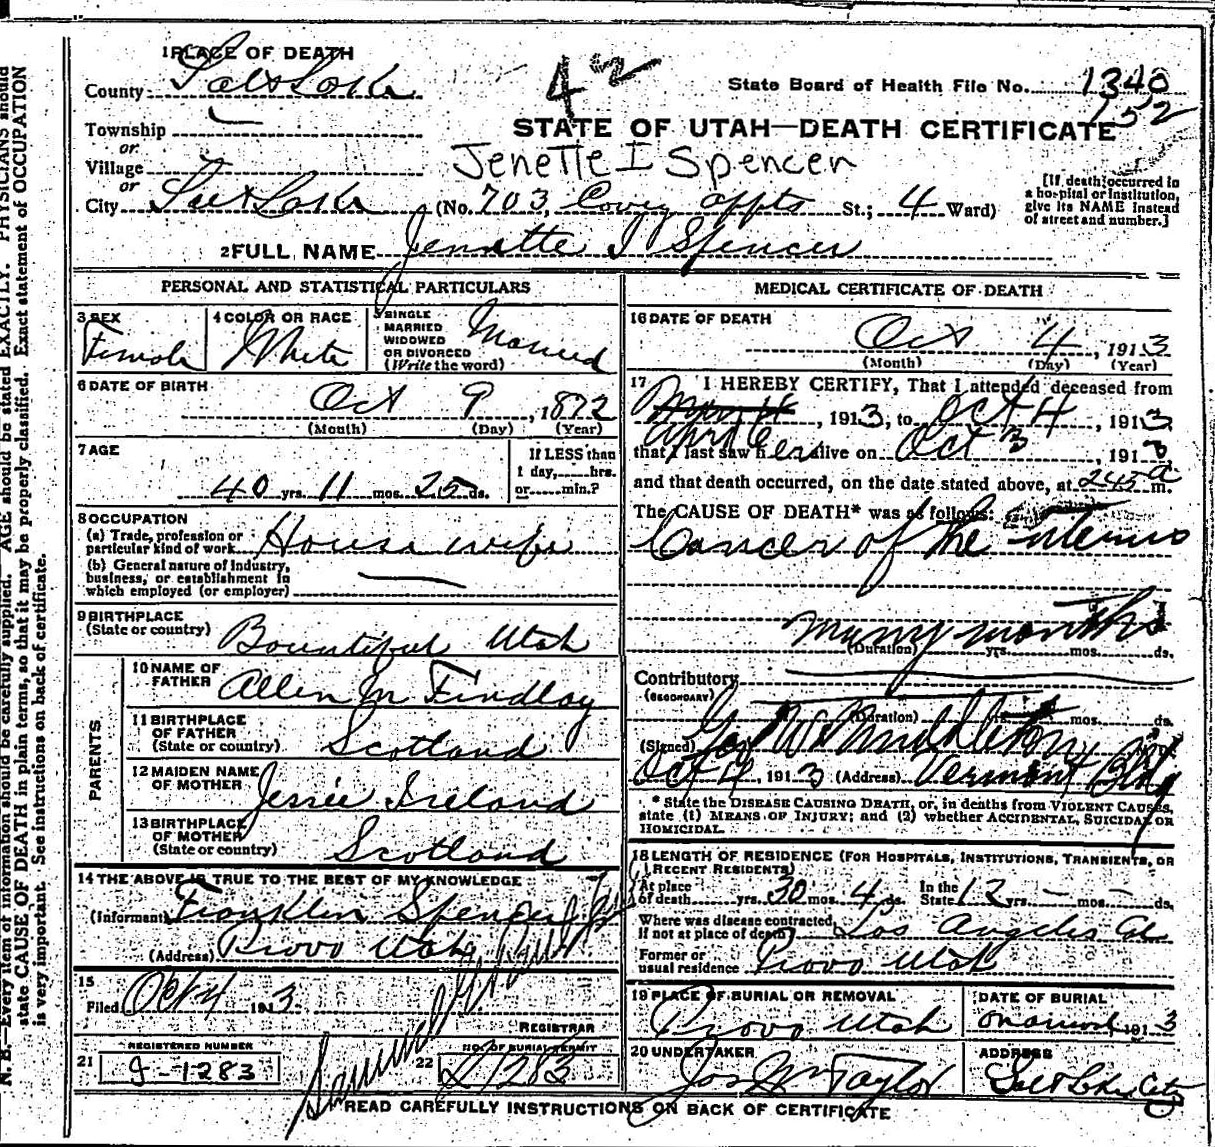 1 PLACE OF DEATH
County Salt Lake
42
State Board of Health File No. 1340
152
Township
or
Village
or
City Salt Lake
STATE OF UTAH—DEATH CERTIFICATE
Jenette I Spencer
(No. 703, Covey appts St.; 4 Ward)
[If death occurred in
a hospital or institution,
give its NAME instead
of street and number.]
2 FULL NAME Jennette I Spencer
PERSONAL AND STATISTICAL PARTICULARS
3 SEX
Female
4 COLOR OR RACE
White
5 SINGLE
MARRIED
WIDOWED
OR DIVORCED
(Write the word)
Married
6 DATE OF BIRTH
Oct 9, 1872
(Month) (Day) (Year)
7 AGE
40 yrs. 11 mos. 25 ds.
If LESS than
1 day,......hrs.
or......min.?
8 OCCUPATION
(a) Trade, profession or
particular kind of work House wife
(b) General nature of industry,
business, or establishment in
which employed (or employer)
9 BIRTHPLACE
(State or country) Bountiful Utah
PARENTS
10 NAME OF
FATHER Allen M Findlay
11 BIRTHPLACE
OF FATHER
(State or country) Scotland
12 MAIDEN NAME
OF MOTHER Jessie Ireland
13 BIRTHPLACE
OF MOTHER
(State or country) Scotland
14 THE ABOVE IS TRUE TO THE BEST OF MY KNOWLEDGE
(Informant) Franklin Spencer Jr
(Address) Provo Utah
15
Filed Oct 4 1913
REGISTRAR
21 REGISTERED NUMBER
J-1283
22 NO. OF BURIAL PERMIT
1283
MEDICAL CERTIFICATE OF DEATH
16 DATE OF DEATH
Oct 4, 1913
(Month) (Day) (Year)
17 I HEREBY CERTIFY, That I attended deceased from
, 1913, to Oct 4, 1913
April 6
that I last saw her alive on Oct 3, 1913
and that death occurred, on the date stated above, at 245 a m.
The CAUSE OF DEATH* was as follows:
Cancer of the uterus
many months
(Duration) yrs. mos. ds.
Contributory
(SECONDARY)
(Duration) mos. ds.
(Signed) Geo W Middleton
Oct 4, 1913 (Address) Vermont Bldg
* State the DISEASE CAUSING DEATH, or, in deaths from VIOLENT CAUSES,
state (1) MEANS OF INJURY; and (2) whether ACCIDENTAL, SUICIDAL OR
HOMICIDAL.
18 LENGTH OF RESIDENCE (FOR HOSPITALS, INSTITUTIONS, TRANSIENTS, OR
RECENT RESIDENTS)
At place
of death yrs. mos. 4 ds. In the
State yrs. ds.
Where was disease contracted,
if not at place of death? Los Angeles Cal
Former or
usual residence Provo Utah
19 PLACE OF BURIAL OR REMOVAL
Provo Utah
DATE OF BURIAL
1913
20 UNDERTAKER
Jos Wm Taylor
ADDRESS
Salt Lake City
READ CAREFULLY INSTRUCTIONS ON BACK OF CERTIFICATE
N. B. Every item of information should be carefully supplied. AGE should be stated EXACTLY. PHYSICIANS should
state CAUSE OF DEATH in plain terms, so that it may be properly classified. Exact statement of OCCUPATION
is very important. See instructions on back of certificate.